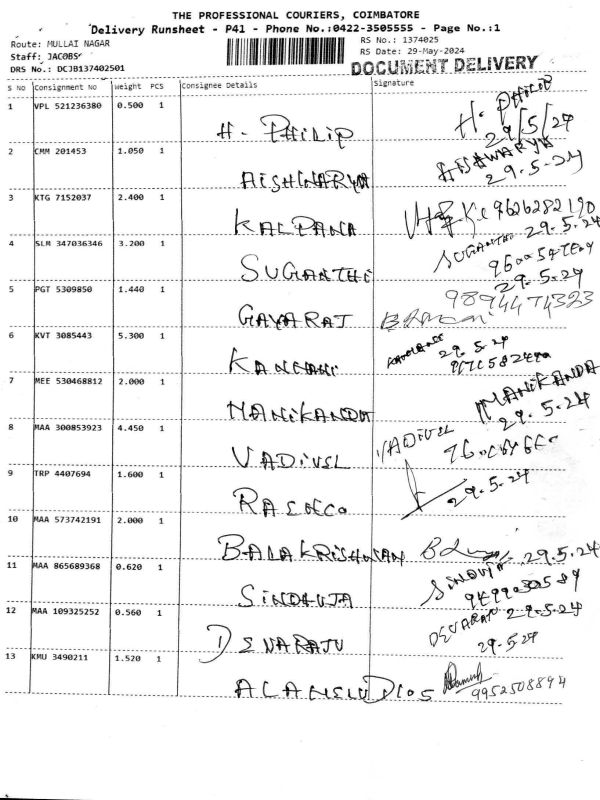 THE PROFESSIONAL COURIERS, COIMBATORE
Delivery Runsheet - P41 - Phone No.:0422-3505555 - Page No.:1
Route: MULLAI NAGAR RS No.: 1374025
Staff: JACOBS RS Date: 29-May-2024
DRS No.: DCJB137402501 DOCUMENT DELIVERY
S No Consignment No Weight PCS Consignee Details Signature
1 VPL 521236380 0.500 1 H. PHILIP H. PHILIP
29/5/24
2 CMM 201453 1.050 1 AISHWARYA AISHWARYA
29.5.24
3 KTG 7152037 2.400 1 KALPANA 9626282190
29.5.24
4 SLM 347036346 3.200 1 SUGANTHI SUGANTHI
29.5.24
5 PGT 5309850 1.440 1 GAYARAJ 9894474323
6 KVT 3085443 5.300 1 29.5.24
7 MEE 530468812 2.000 1 MANIKANDA MANIKANDA
29.5.24
8 MAA 300853923 4.450 1 VADIVEL VADIVEL
9 TRP 4407694 1.600 1 29.5.24
10 MAA 573742191 2.000 1 BALAKRISHNAN 29.5.24
11 MAA 865689368 0.620 1 SINDHUJA SINDUJA
12 MAA 109325252 0.560 1 DEVARAJU DEVARAJU 29.5.24
29.5.24
13 KMU 3490211 1.520 1 9952508894